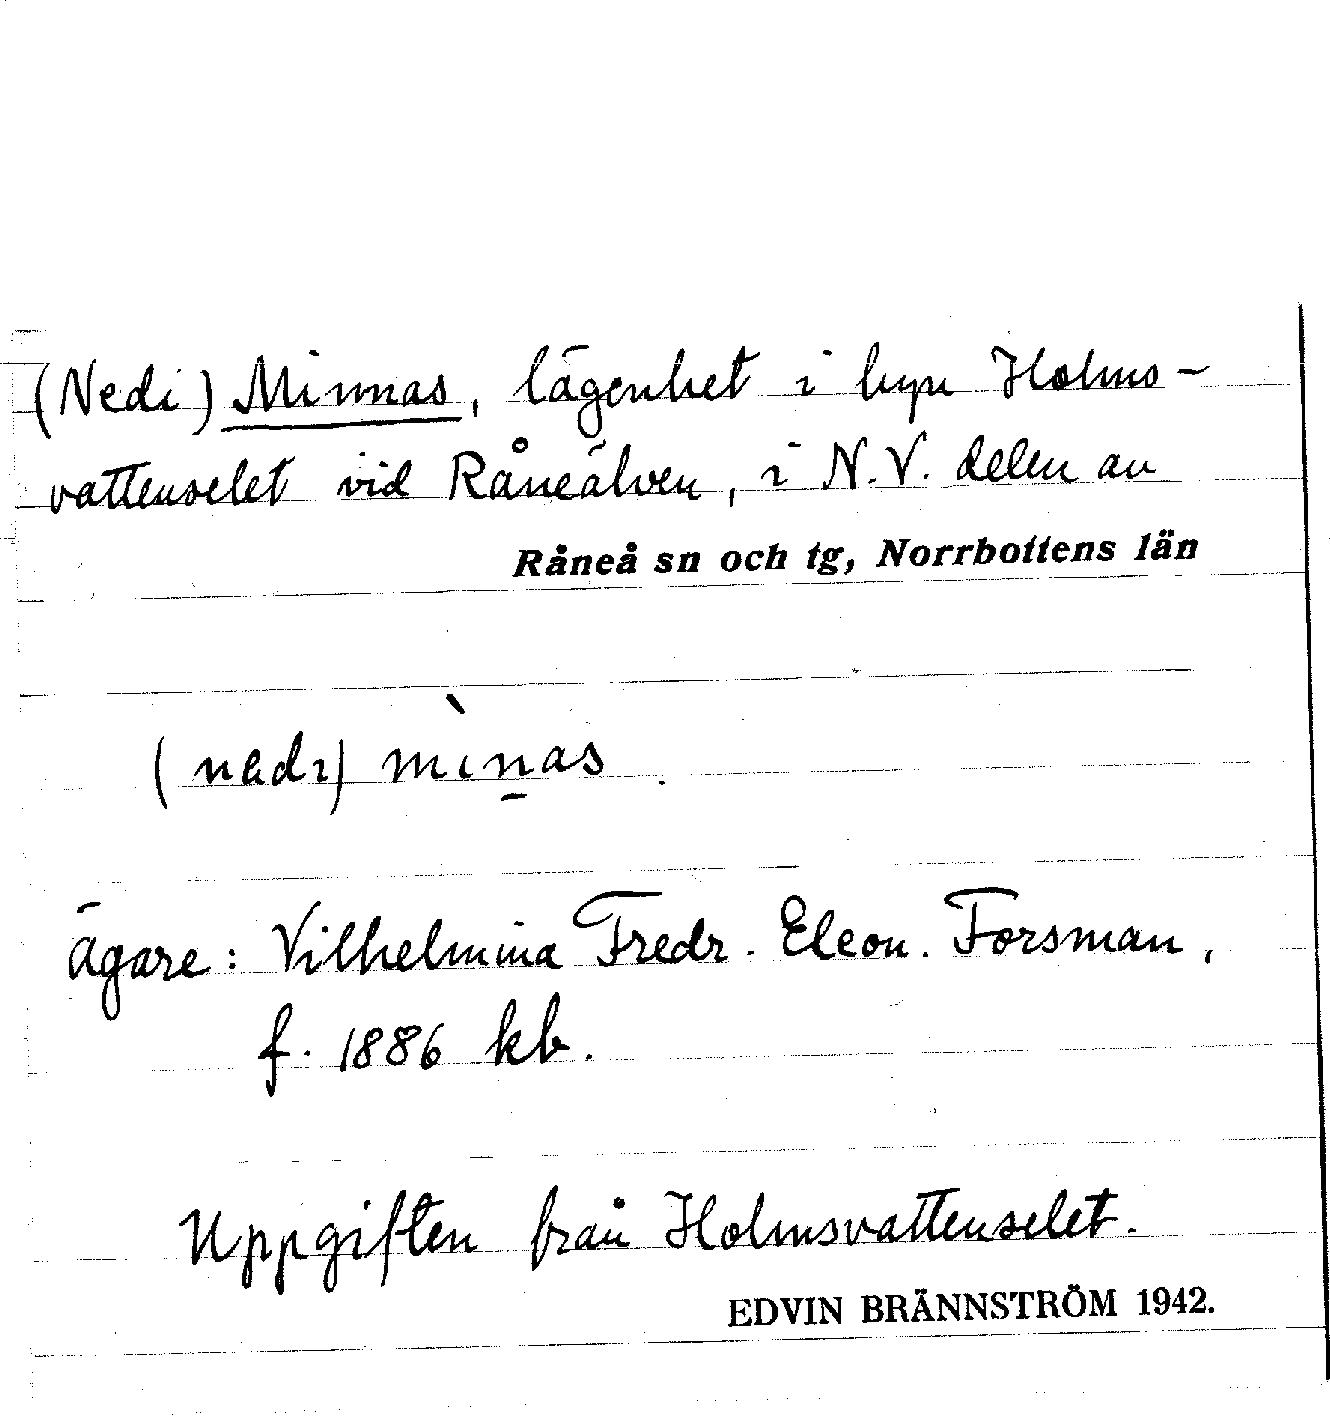 (Nedi) Minnas, lägenhet i byn Holms-
vattenselet vid Råneälven, i N.V. delen av
Råneå sn och tg, Norrbottens län
(nedı) mìn̠as.
Ägare: Vilhelmina Fredr. Eleon. Forsman,
f. 1886 kb.
Uppgiften från Holmsvattenselet.
EDVIN BRÄNNSTRÖM 1942.